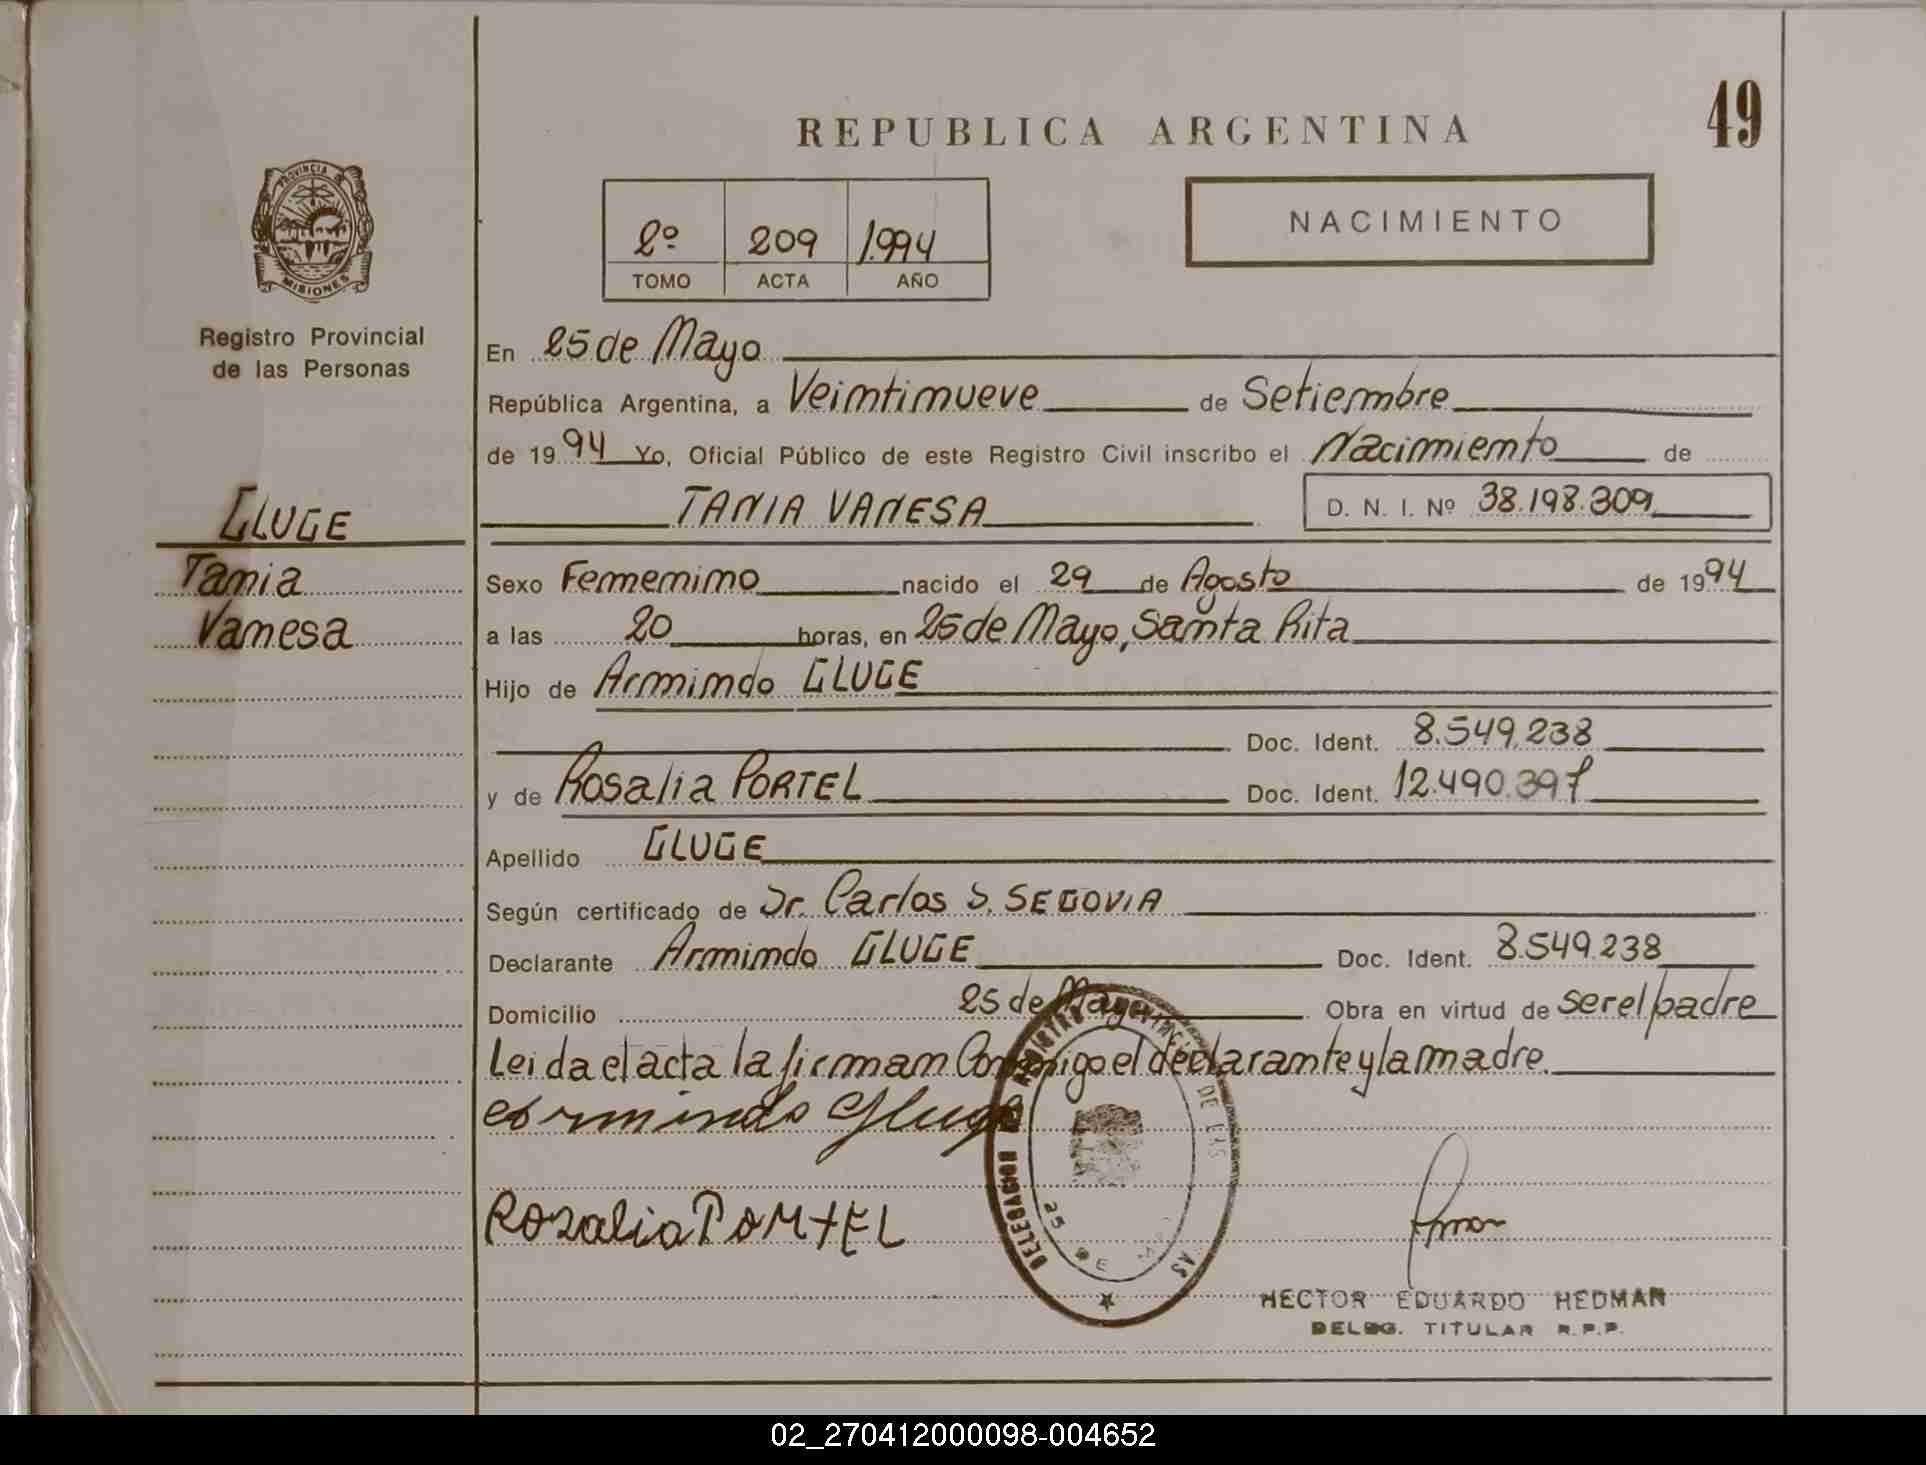 49
REPUBLICA ARGENTINA
PROVINCIA DE
MISIONES
Registro Provincial
de las Personas
2º 209 1.994
TOMO ACTA AÑO
NACIMIENTO
En 25 de Mayo
República Argentina, a Veintinueve de Setiembre
de 1994 Yo, Oficial Público de este Registro Civil inscribo el Nacimiento de
TANIA VANESA D. N. I. Nº 38.198.309
GLUGE
Tania
Vanesa
Sexo Femenino nacido el 29 de Agosto de 1994
a las 20 horas, en 25 de Mayo, Santa Rita
Hijo de Armindo GLUGE
Doc. Ident. 8.549.238
y de Rosalia PORTEL Doc. Ident. 12.490.397
Apellido GLUGE
Según certificado de Dr. Carlos S. SEGOVIA
Declarante Armindo GLUGE Doc. Ident. 8.549.238
Domicilio 25 de Mayo Obra en virtud de ser el padre
Leida el acta la firman Conmigo el declarante y la madre.
Armindo Gluge
Rozalia PoRtEL
DELEGACION REGISTRO PROVINCIAL DE LAS
25 DE
HECTOR EDUARDO HEDMAN
DELEG. TITULAR R.P.P.
02_270412000098-004652